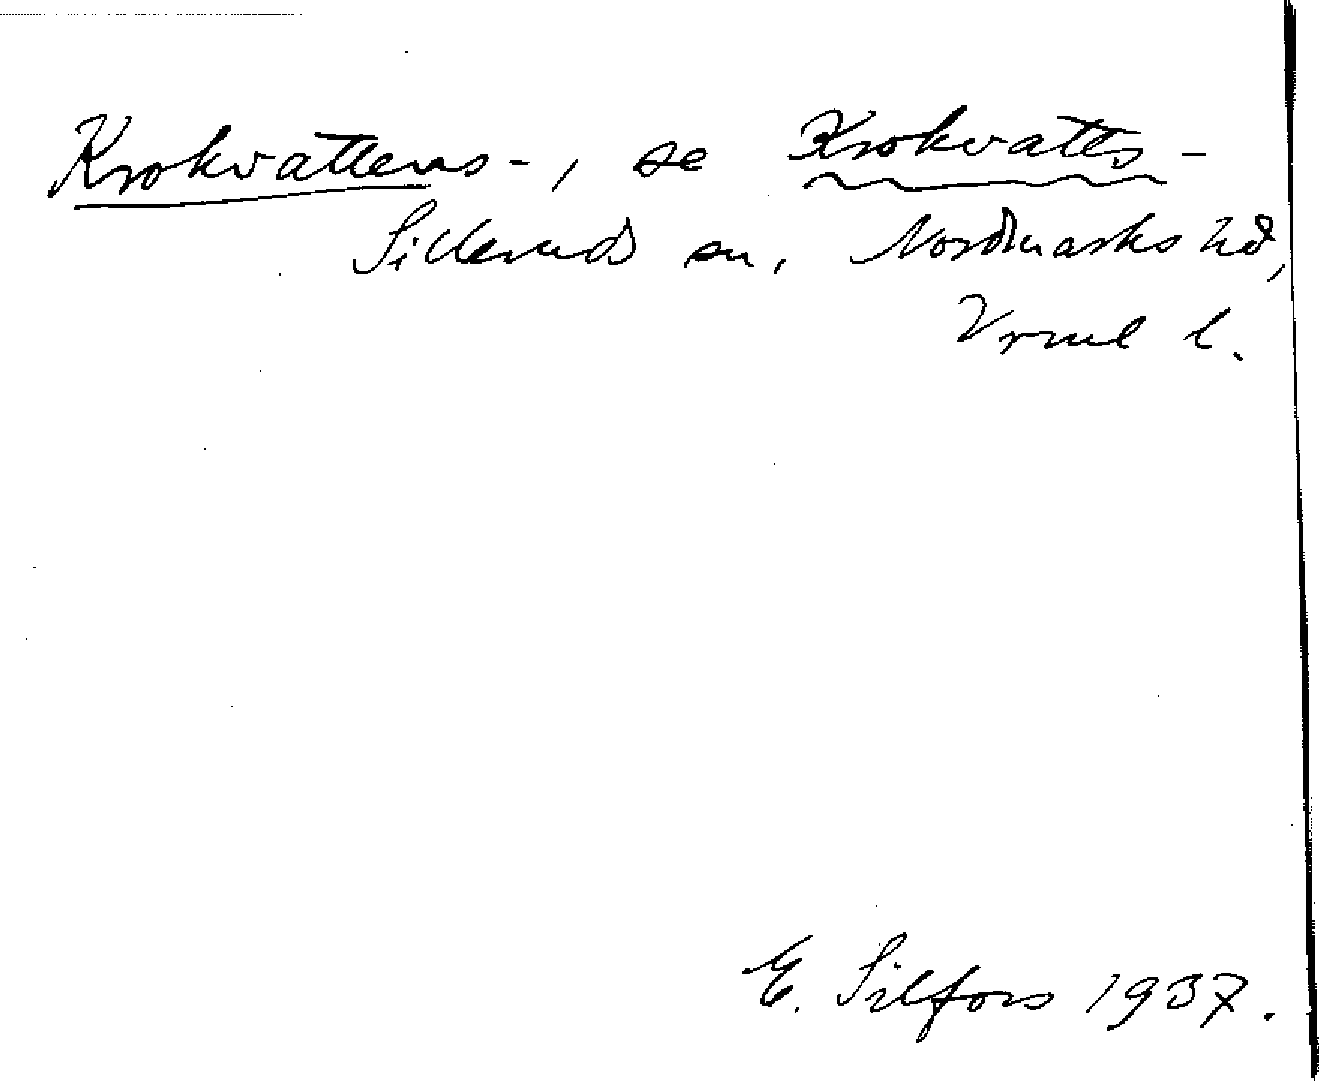 Krokvattens-, se Krokvatts-
Silleruds sn, Nordmarks hd,
Vrml l.
E. Silfors 1937.